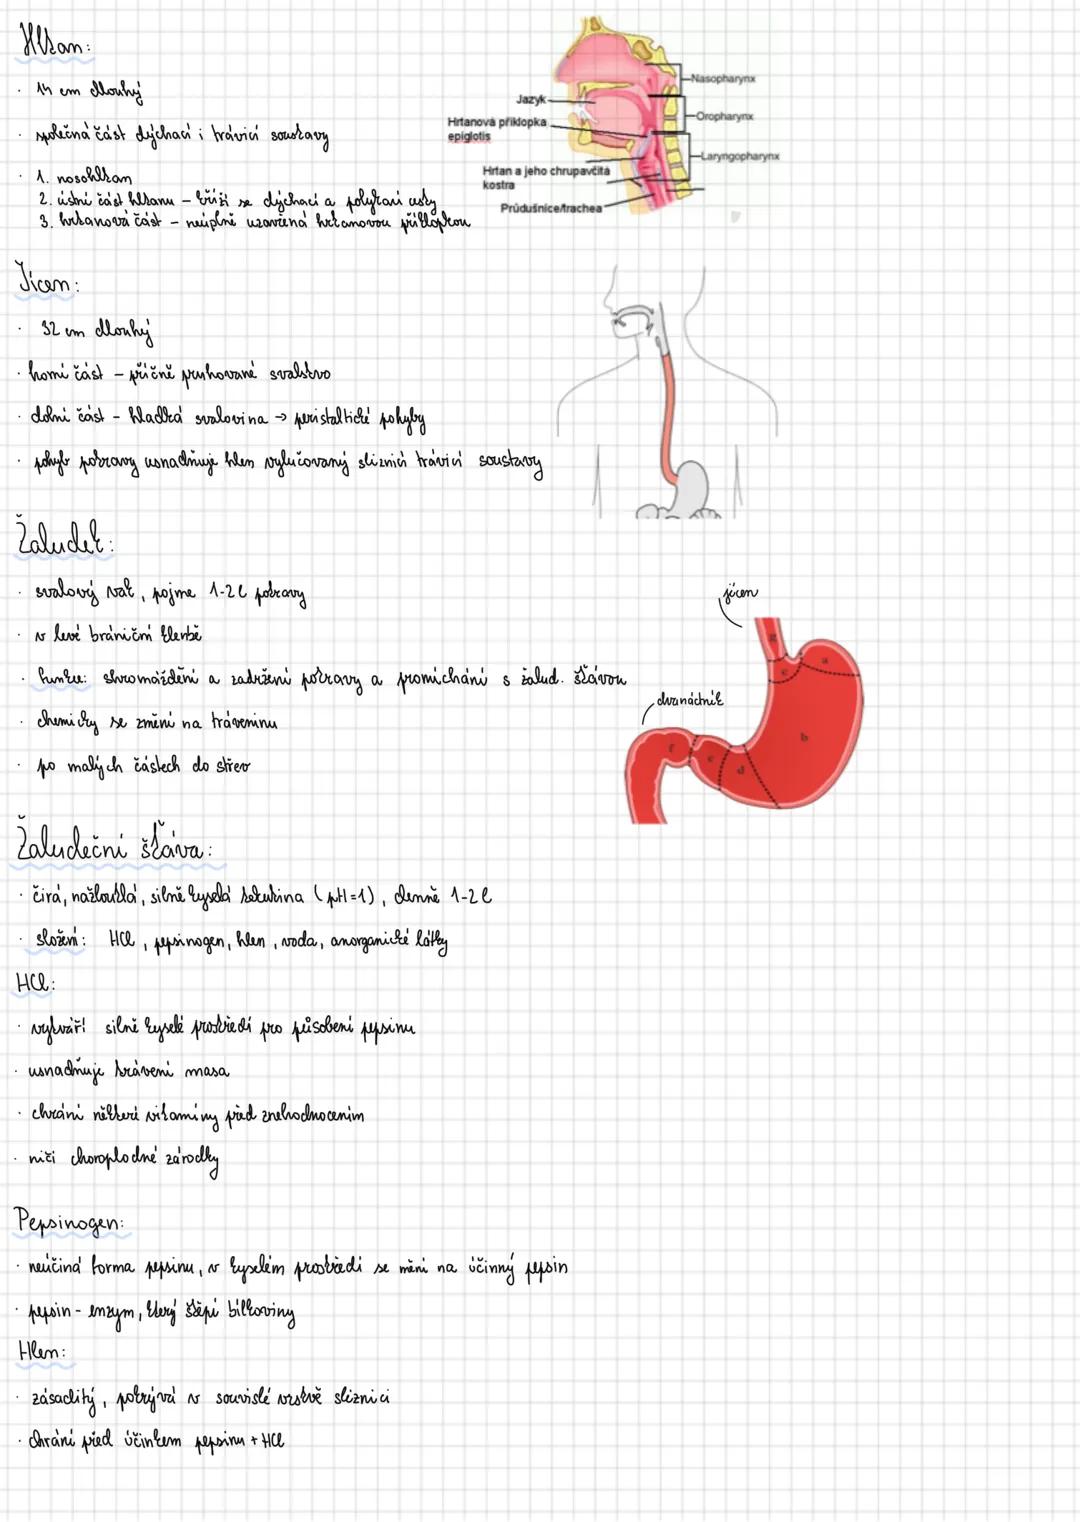 Hltan:
· 14 cm dlouhý
· společná část dýchací i trávicí soustavy
· 1. nosohltan
2. ústní část hltanu – kříží se dýchací a polykací cesty
3. hrtanová část – neúplně uzavřená hrtanovou příklopkou
Nasopharynx
Jazyk
Oropharynx
Hrtanová příklopka
epiglotis
Laryngopharynx
Hrtan a jeho chrupavčitá
kostra
Průdušnice/trachea
Jícen:
· 32 cm dlouhý
· horní část – příčně pruhované svalstvo
· dolní část – hladká svalovina → peristaltické pohyby
· pohyb potravy usnadňuje hlen vylučovaný sliznicí trávicí soustavy
Žaludek:
· svalový vak, pojme 1-2 l potravy
· v levé brániční klenbě
· funkce: shromáždění a zadržení potravy a promíchání s žalud. šťávou
· chemicky se změní na tráveninu
· po malých částech do střev
jícen
dvanáctník
g
a
c
b
f
e
d
Žaludeční šťáva:
· čirá, nažloutlá, silně kyselá tekutina (pH=1), denně 1-2 l
· složení: HCl, pepsinogen, hlen, voda, anorganické látky
HCl:
· vytváří silně kyselé prostředí pro působení pepsinu
· usnadňuje trávení masa
· chrání některé vitamíny před znehodnocením
· ničí choroplodné zárodky
Pepsinogen:
· neúčiná forma pepsinu, v kyselém prostředí se mění na účinný pepsin
· pepsin - enzym, který štěpí bílkoviny
Hlen:
· zásaditý, pokrývá v souvislé vrstvě sliznici
· chrání před účinkem pepsinu + HCl